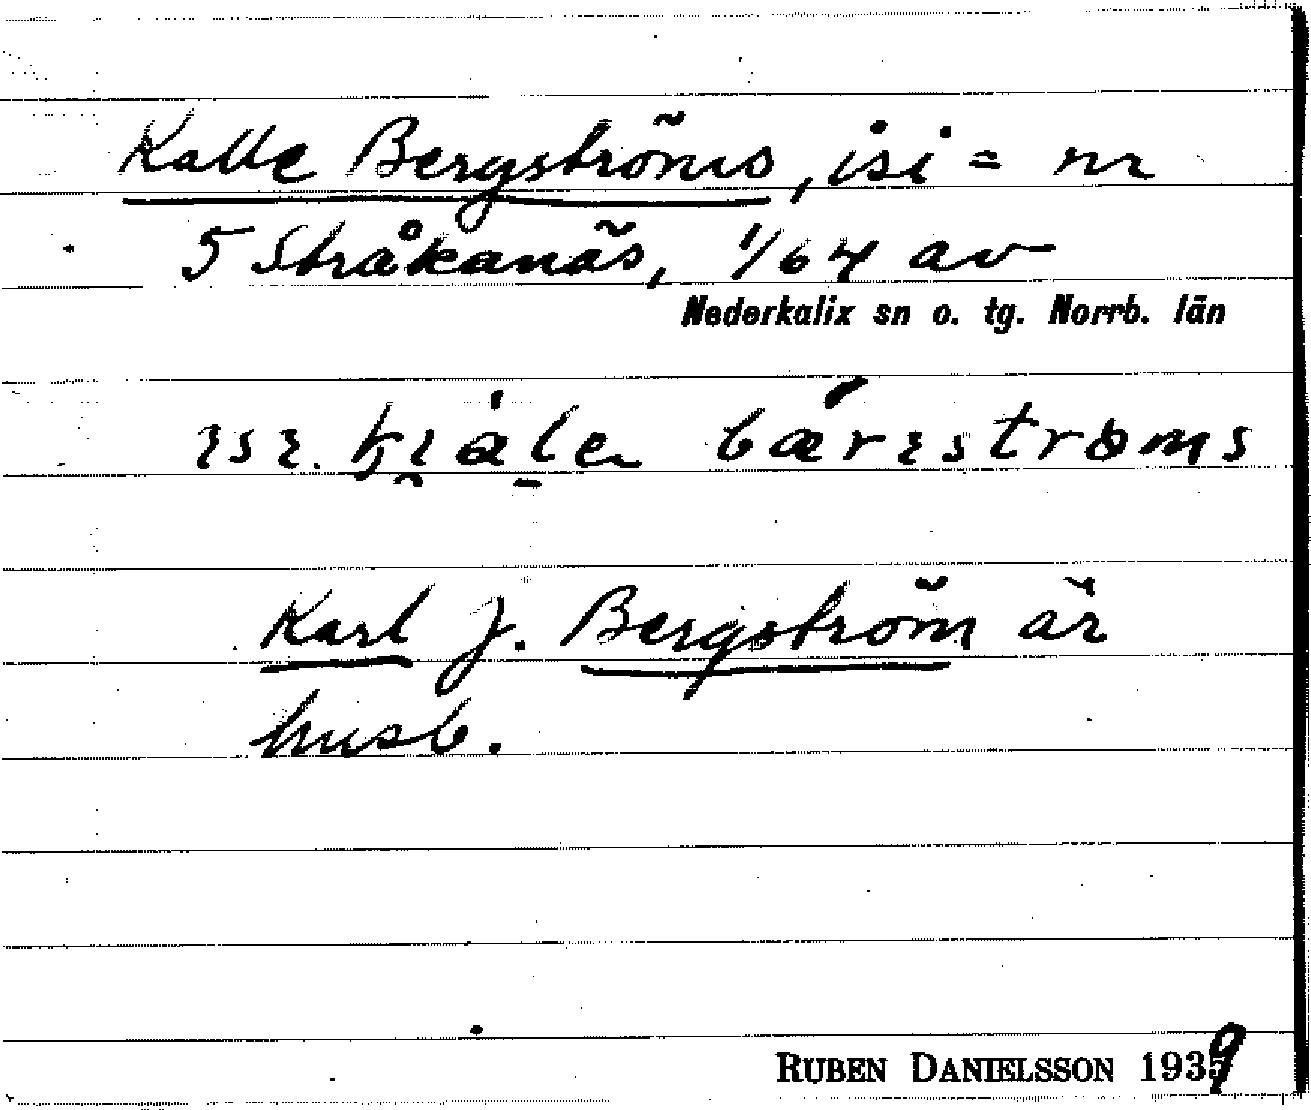 Kalle Bergströms, isi = nr
5 Stråkanäs, 1/64 av
Nederkalix sn o. tg. Norrb. län
Karl J. Bergström är
husb.
RUBEN DANIELSSON 1939